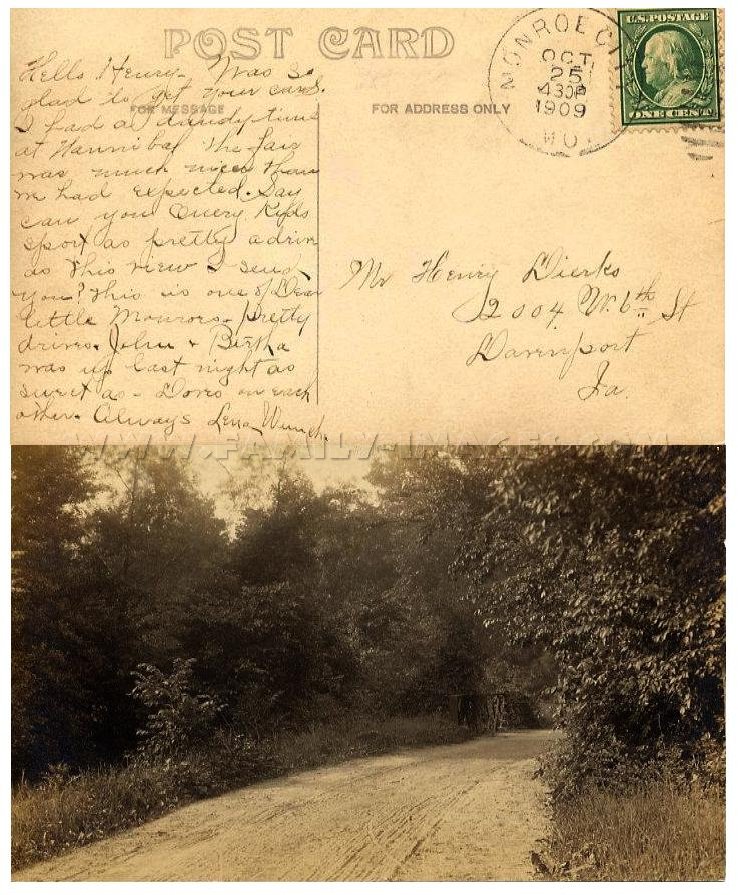 POST CARD
FOR MESSAGE
FOR ADDRESS ONLY
MONROE CITY
OCT
25
430P
1909
MO.
U.S. POSTAGE
ONE CENT
Hello Henry. Was so
glad to get your card.
I had a dandy time
at Hannibal the fair
was much nicer than
we had expected. Say
can you Query Kids
sport as pretty a drive
as this view I send
you? This is one of Dear
little Monroes pretty
drives. John & Bertha
was up last night as
sweet as Doves on each
other. Always Lena Wunch.
Mr Henry Dierks
2004 W. 6th St
Davenport
Ia.
WWW.FAMILY-IMAGES.COM